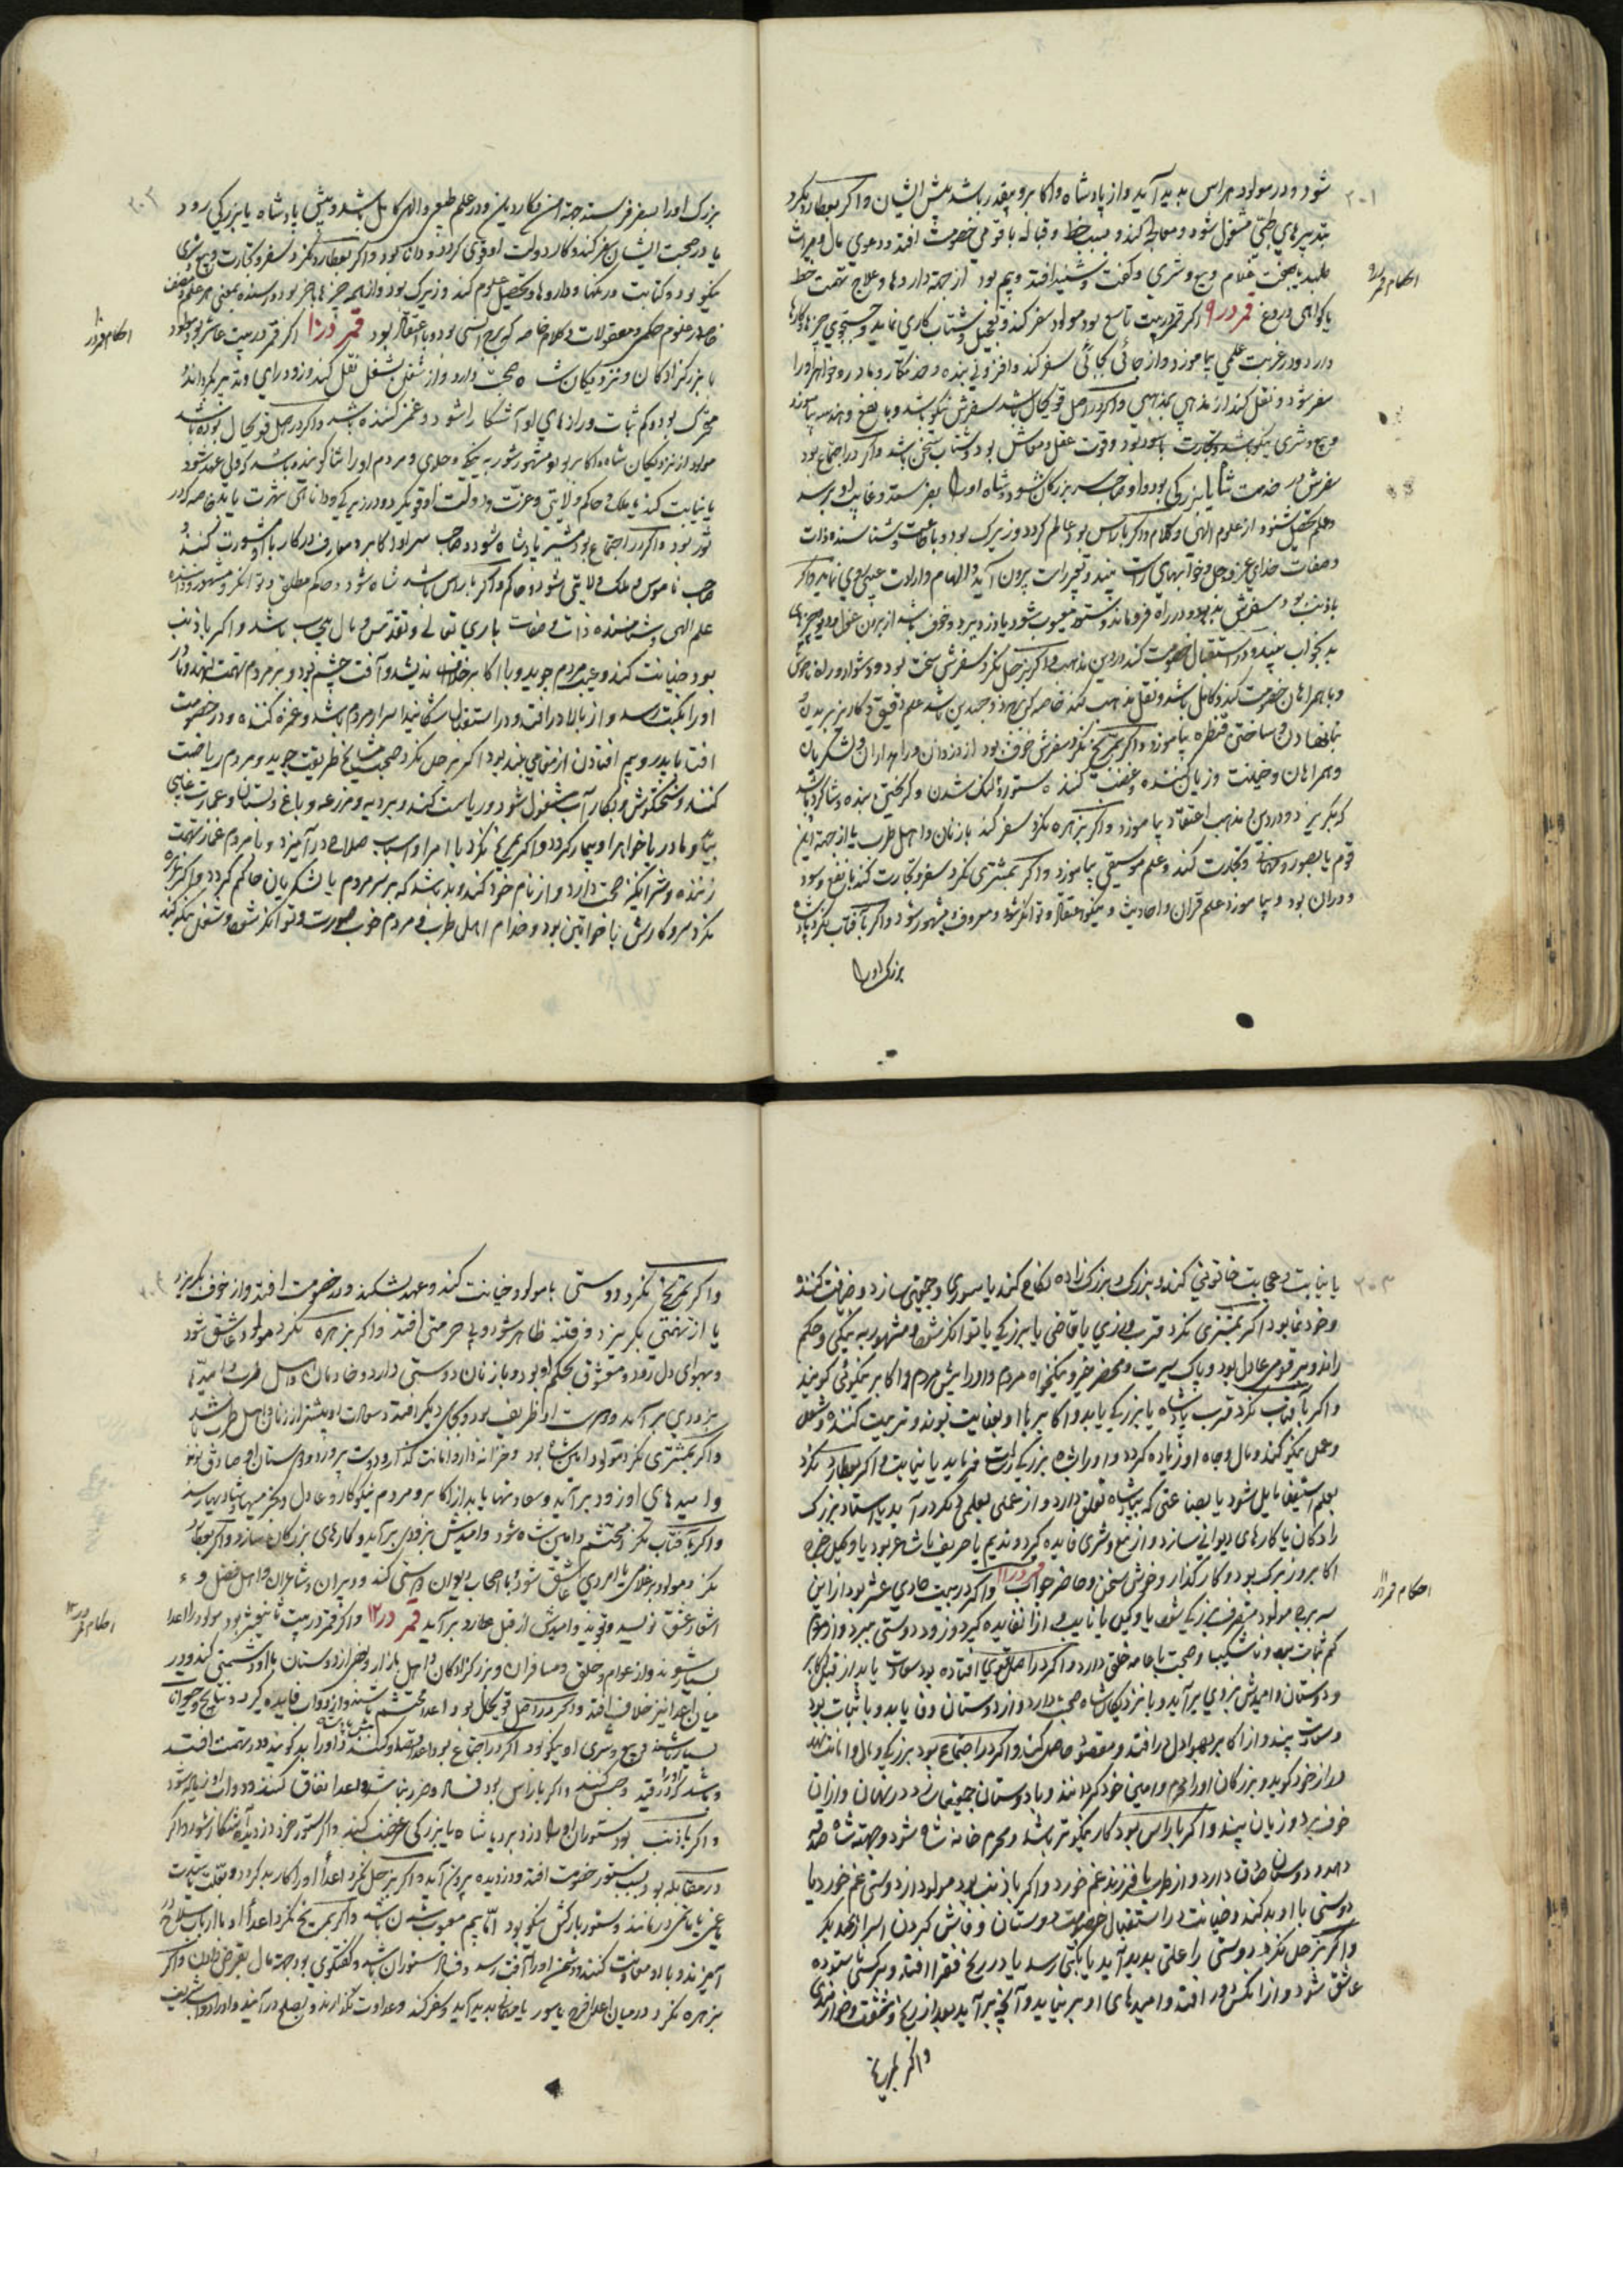 ۲۰۱
شود و در مولود هراس پدید آید و از پادشاه و اکابر و بیقدر باشد پیش ایشان و اگر بعطارد نکرد
بتدبیرهای طبی مشغول شود و معالجه کند و بسبب خط و قباله با قومی خصومت افتد و دعوی مال و میراث
طلبد یا بجهت غلام و بیع و شری و گفت و شنید افتد و بیم بود از جهة داروها و علاج و تهمت خط
احکام قمر در ۹
یا گواهی دروغ قمر در ۹ اگر قمر در بیت تاسع بود مولود سفر کند و بتعجیل و شتاب کاری نماید و جستجوی چیزها و کارها
دارد و در غربت علمی بیاموزد و از جائی بجائی سفر کند و افزونی بنده و خدمتکار و مادر و خواهر او را
سفر شود و نقل کند از مذهبی بمذهبی و اگر در اصل قوی حال باشد سفرش نیکو باشد و با نفع و هندسه بیاموزد
و بیع و شری نیکو باشد و تجارت با سود بود و قوت عقل و معاش بود و شتاب سخن باشد و اگر در اجتماع بود
سفرش در خدمت شاه یا بزرگی بود و او صاحب سر بزرگان شود و شاه او را بسفر فرستد و غایب او برسد
و علم تحصیل شنود از علوم الهی و کلام و اگر با راس بود عالم گردد و زیرک بود و باعبادت و شناسنده ذات
و صفات خدای عز و جل و خوابهای راست بیند و تعبیر راست بیرون آید و الهام و ارادت غیبی روی نماید و اگر
با ذنب بود سفرش بد بود و در راه فرو ماند و ستور معیوب شود یا دزد ببرد و خوف باشد از بیرون غول و دیو و چیزهای
بد بخواب بیند و در استقبال خصومت کند در دین و مذهب و اگر بزحل نکرد سفرش سخت بود و دشوار و راه ناخوش
و با همراهان خصومت کند و کاهل باشد و نقل مذهب کند خاصه که برج ذو جسدین باشد علم دقیق و کاریز بریدن
بنا نهادن و ساختن قنطره بیاموزد و اگر بمریخ نکرد سفرش خوف بود از دزدان و راهداران و لشکریان
و همراهان و خیانت و زیان کننده و غضب کننده و ستور و لنگ شدن و گریختن بنده و شاگرد باشد
که بگریزد و در دین و مذهب اعتقاد بیاموزد و اگر بزهره نکرد سفر کند با زنان و اهل طرب یا از جهة این
قوم یا بصور و مهمانی و تجارت کند و علم موسیقی بیاموزد و اگر بمشتری نکرد سفر و تجارت کند با نفع و سود
و در آن بود و بیاموزد علم قرآن و احادیث و نیکو اعتقاد و توانگر شود و معروف و مشهور شود و اگر بآفتاب نکرد پادشاه
بزرگ او را
۲۰۲
بزرگ او را بسفر فرستد جهة امن و کار دین و در علم طبیعی و الهی کامل باشد و پیش پادشاه یا بزرگی رود
یا در صحبت ایشان سفر کند و کار دولت او قوی گردد و دانا بود و اگر بعطارد نکرد سفر و تجارت و بیع و شری
نیکو بود و کتابت و رنگها و داروها و تحصیل علوم کند و زیرک بود و از همه چیزها باخبر بود و رسنده بمعنی هر علم و مصنف
احکام قمر در ۱۰
خاصه در علوم حکمی و معقولات و کلام خاصه که برج انسی بود و با اعتقاد بود قمر در ۱۰ اگر قمر در بیت عاشر بود مولود
با بزرگزادگان و نزدیکان شاه صحبت دارد و از شغلی بشغلی نقل کند و زود رای و تدبیر بگرداند و
متحرک بود و کم ثبات و رازهای او آشکارا شود و غمز کننده باشد و اگر در اصل قوی حال بود باشد
مولود از نزدیکان شاه و اکابر بود و مشهور شود به نیکوئی و جلدی و مردم او را ثنا گوینده باشد که ولی عهد شود
یا نیابت کند یا ملک و حاکم ولایتی و عزت و دولت او قوی گردد و در زیرکی و دانائی شهرت یابد خاصه که در
ثور بود و اگر در اجتماع بود مشیر پادشاه شود و صاحب سر او و اکابر و معارف در کار با او مشورت کنند و
صاحب ناموس و ملک و لایق شود و حاکم و اگر با راس باشد شاه شود و حاکم مطلق و توانگر و مشهور و داننده
علم الهی و شناسنده ذات و صفات باری تعالی و تقدس و مال بیحساب باشد و اگر با ذنب
بود خیانت کند و عیب مردم جوید و با اکابر خلاف اندیشد و آفت چشم بود و بر مردم تهمت نهد و مادر
او را نکبت رسد و از بالا در افتد و در استقبال آشکارا اسرار مردم باشد و غمزه کننده و در خصومت
افتد با پدر و بیم افتادن از مقامی بلند بود اگر بزحل نکرد صحبت مشایخ طریقت جوید و مردم ریاضت
کنند و سختکوش و بکار آب مشغول شود و ریاست کند و بر دیه و مزرعه و باغ و بستان و عمارت عالی
بنا و مادر یا خواهر او بیمار گردد و اگر بمریخ نکرد با امرا و اسباب سلاح در آمیزد و با مردم غماز و تهمت
زننده و شرانگیز صحبت دارد و از نام خود کنند و بد باشد که بر سر مردم یا لشکریان حاکم گردد و اگر بزهره
نکرد سر و کارش با خواتین بود و خدام اهل طرب و مردم خوب صورت و توانگر شود و شغل نیکو کند
۲۰۳
یا نیابت و حجابت خاتونی کند و بزرگ و بزرگ زاده نکاح کند یا سوری و جمعیتی سازد و ضیافت کند و
و خود نما بود اگر بمشتری نکرد قرب وزیری یا قاضی یا بزرگی یابد توانگر شود و مشهور به نیکی و حکم
راند و بر قومی عادل بود و پاک سیرت و محضر خیر و نیکخواه مردم و او را پیش مردم و اکابر نیکوئی گویند
و اگر بآفتاب نکرد قرب پادشاه یا بزرگی یابد و اکابر با او بعنایت بوند و تربیت کننده و شغل
و عمل نیکو کند و مال و جاه او زیاده گردد و او را شاه بزرگی راست فرماید یا نیابت و اگر بعطارد نکرد
بعلم استیفا مایل شود یا بصناعتی که بپادشاه تعلق دارد و از عملی بعملی دیگر در آید یا استاد بزرگ
زادگان یا کارهای دیوانی سازد و از بیع و شری فایده گیرد و ندیم یا حریف یا شاعر بود یا وکیل خرج
اکابر و زیرک بود و کارگذار و خوش سخن و حاضر جواب قمر در ۱۱ و اگر در بیت حادی عشر بود از این
احکام قمر در ۱۱
سه برج مولود متصرف بزرگی شود یا وکیل یا نایب و از آنها فایده گیرد و زود دوستی ببرد و از مردم
کم ثبات بود و ناشکیب و صحبت با عامه خلق دارد و اگر در اصل قوی افتاده بود سعادت یابد از قبل اکابر
و دوستان و امیدش بزودی برآید و با نزدیکان شاه صحبت دارد و از دوستان وفا یابد و با ثبات بود
و سعادت بیند و از اکابر بهر مراد دل در افتد و مقصود حاصل کند و اگر در اجتماع بود بزرگی و مال و امانت نهد
و راز خود گوید و بزرگان او را محرم و امین خود گردانند و با دوستان جمعیت در نهان و از این
خوف برد و زیان بیند و اگر با راس بود کار نیکوتر باشد و محرم خانه شاه شود و جهت شاه هدیه
دهد و دوستان صادق دارد و از طرب یا فرزند غم خورد و اگر با ذنب بود مولود از دوستی غم خورد یا
دوستی با او بد کند و خیانت و در استقبال خصومت دوستان و فاش کردن اسرار یکدیگر
و اگر بزحل نکرد دوستی را علتی پدید آید یا نکبتی رسد یا در رنج فقر افتد و سرکشی ناستوده
عاشق شود و از آنکس دور افتد و امیدهای او بر نیاید و آنچه برآید بعد از رنج و مشقت و خواری
و اگر بمریخ
۲۰۴
و اگر بمریخ نکرد دوستی با مولود خیانت کند و عهد بشکند و در خصومت افتد و از خوف بگریزد
یا از تهمتی بگریزد و فتنه ظاهر شود و بی حرمتی افتد و اگر بزهره نکرد مولود عاشق شود
و بهوای دل رود و معشوق بحکم او بود و با زنان دوستی دارد و خادمان و اهل طرب و امیدها
بزودی برآید و دوست او ظریف بود و بجای دیگر افتد و سعادت او بیشتر از زنان و اهل طرب باشد
و اگر بمشتری نکرد مولود امین شاه بود و خزانه دار و امانت گذار و دوست پرور و دوستان او صادق بوند
و امیدهای او زود برآید و سعادتها یابد از اکابر و مردم نیکوکار و عادل و بخرمیها و شادیها رسد
و اگر بآفتاب نکرد محتشم و امین شاه شود و امیدش بزودی برآید و کارهای بزرگان سازد و اگر بعطارد
نکرد مولود بر غلامی یا امردی عاشق شود و با اصحاب دیوان دوستی کند و دبیران و شاعران و اهل فضل و
اشعار عشق نویسد و بخواند و امیدش از قبل عطارد برآید قمر در ۱۲ و اگر قمر در بیت ثانی عشر بود مولود را اعدا
احکام قمر در ۱۲
بسیار شوند و از عوام و خلق و مسافران و بزرگزادگان و اهل بازار و بعضی از دوستان با او دشمنی کند و در
میان اعدا نیز خلاف افتد و اگر در اصل قوی حال بود اعدا محتشم باشند و از دواب فایده گیرد و نتایج حیوانات
بسیار باشد و بیع و شری او نیکو بود اگر در اجتماع بود اعدا قصد او کنند و او را بد گویند و در تهمت افتد
و باشد که او را در قید و حبس کنند و اگر با راس بود فساد و ضرر بنماید و اعدا اتفاق کنند و دواب او زیاده شود
و اگر با ذنب بود ستوران او را دزد ببرد یا شاه یا بزرگی غصب کند و اگر ستور خرد دزدیده آشکارا شود و اگر
در مقابله بود بسبب ستور خصومت افتد و دزدیده بیرون آید و اگر بزحل نکرد اعدا او را کار بد گردد و بعلت شدت
یا غمی یا بتخم درمانند و ستور بارکش نیکو بود اما بیم معیوب شدن باشد و اگر بمریخ نکرد اعدا او با ارباب سلاح در
آمیزند و با او معاونت کنند و دشمن او را آفت رسد و فساد ستوران باشد و گفتگوی بود جهت مال بقرض و غلام و اگر
بزهره نکرد در میان اعدا فرح یا سور یا نکاح پدید آید و سفر کند و عداوت بگذارند و بصلح در آیند و او را دواب شریف